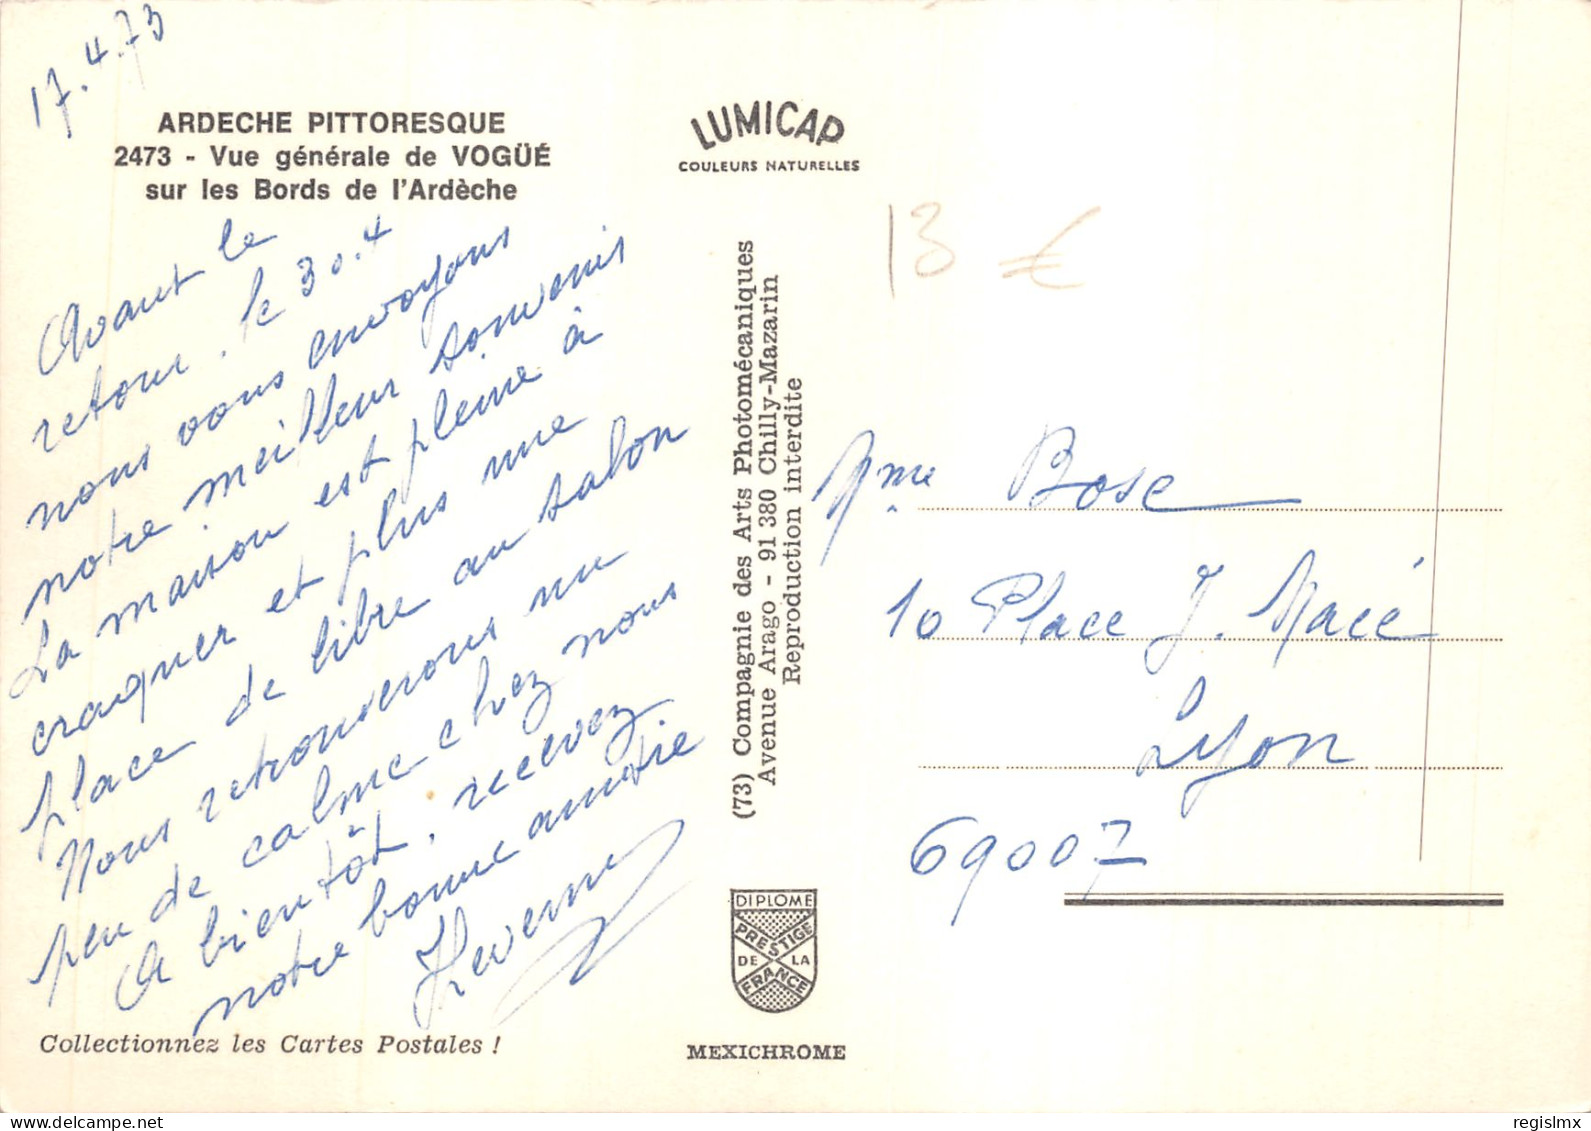 17.4.73
ARDECHE PITTORESQUE
2473 - Vue générale de VOGÜÉ
sur les Bords de l'Ardèche
Avant le
retour, le 30.4
nous vous envoyons
notre meilleur souvenir
La maison est pleine à
craquer et plus une
place de libre au salon
Nous retrouverons un
peu de calme chez nous
A bientôt, recevez
notre bonne amitie
Collectionnez les Cartes Postales !
LUMICAP
COULEURS NATURELLES
(73) Compagnie des Arts Photomécaniques
Avenue Arago - 91 380 Chilly-Mazarin
Reproduction interdite
DIPLOME
PRESTIGE
DE LA
FRANCE
MEXICHROME
13 €
Mme Bosc
10 Place J. Macé
Lyon
69007
www.delcampe.net
regislmx